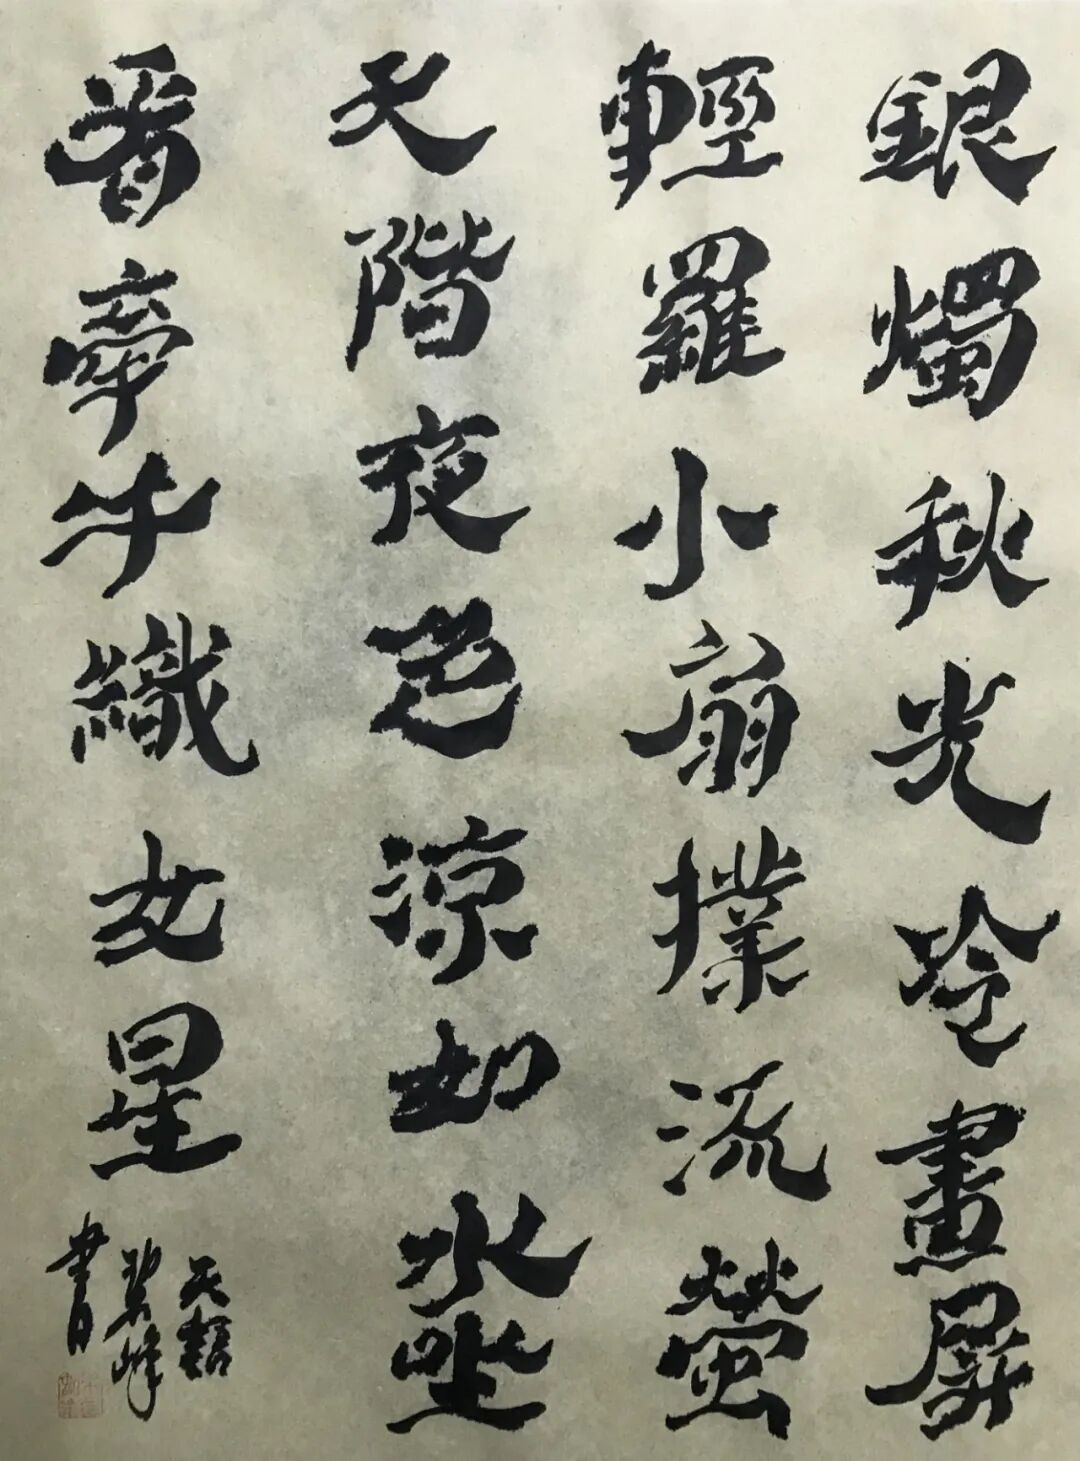 銀燭秋光冷畫屏
輕羅小扇撲流螢
天階夜色涼如水坐
看牽牛織女星
碧峰
書